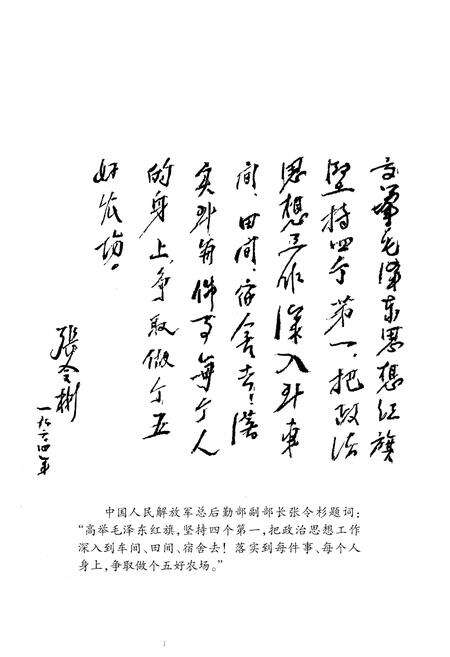 高举毛泽东思想红旗
坚持四个第一、把政治
思想工作深入到车
间、田间、宿舍去!落
实到每件事每个人
的身上,争取做个五
好农场。
張令彬
一九六四年
中国人民解放军总后勤部副部长张令杉题词:
“高举毛泽东红旗,坚持四个第一,把政治思想工作
深入到车间、田间、宿舍去!落实到每件事、每个人
身上,争取做个五好农场。”